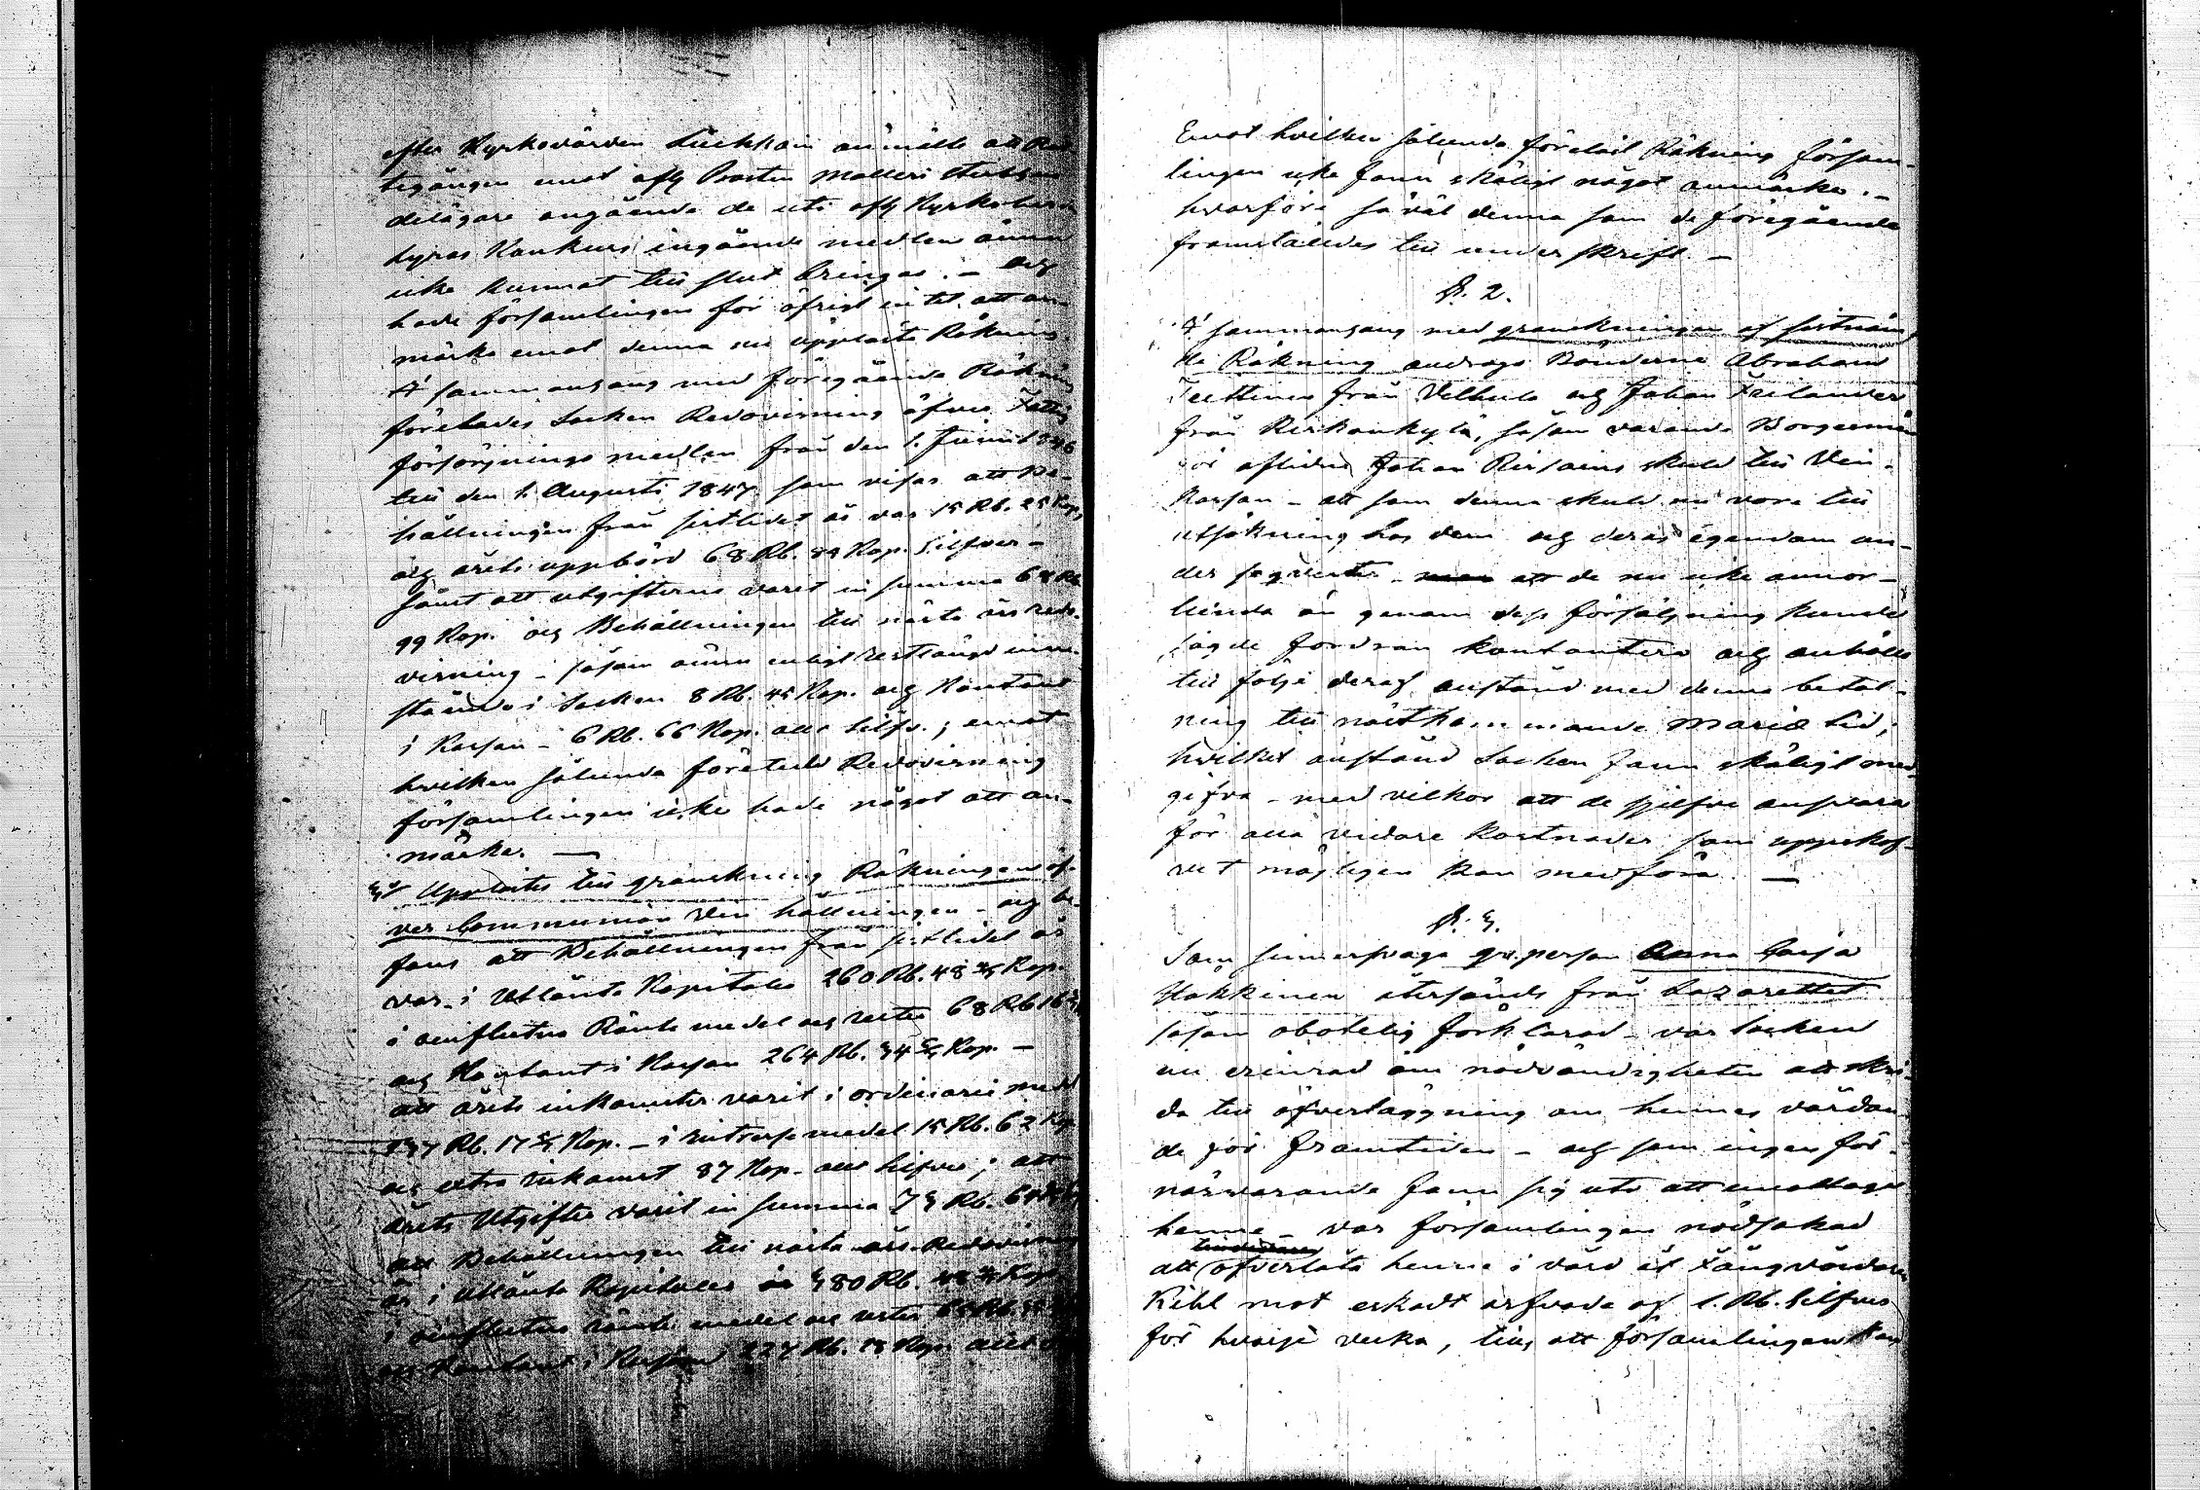 efter Kyrkovärden Luckkain anmälte att Rät-
tegången emot afl. Prosten Molleri Sterbhus
delägare angående de uti afl. Kyrkoherr
hyras Konkurs ingående medlen ännu
icke kunnat till slut bringas. — Och
hade församlingen för öfrigt intet att an-
märka emot denna nu upplästa Räkning
I sammanhang med föregående Räkning
företedes Socken Redovisning öfver Fattig
försörjnings medlen från den 1. Junii 1846
till den 1. Augusti 1847 som visar att Be-
hållningen från sistlidet år var 15 Rb. 25 Kop.
och årets uppbörd 68 Rb. 84 Kop. Silfver —
samt att utgifterne varit in summa 68 Rb.
99 Kop. och Behållningen till nästa års redo-
visning — såsom ännu enligt restlängd inne-
stående i Socken 8 Rb. 45 Kop. och Kontant
i Kassan — 6 Rb. 66 Kop. allt Silfv.; emot
hvilken sålunda företedd Redovisning
församlingen icke hade något att an-
märka. —
Upplästes till granskning Räkningen öf-
ver Communion Vin hållningen — och be-
fans att Behållningen från sistlidet år
var i Utlänte Kapitaler 260 Rb. 48 Kop.
i oinflutne Ränte medel och rester 68 Rb. 16
och Kontant i Kassan 264 Rb. 34 Kop. —
att årets inkomster varit i ordinarie medel
Rb. 17 Kop. — i Intresse medel 15 Rb. 62 Kop.
och extra inkomst 87 Kop. allt Silfver; att
årets Utgifter varit in summa 73 Rb.
att Behållningen till nästa års Redovisning
är i Utlänte Kapitaler 380 Rb. Kop.
i oinflutne ränte medel och rester
och Kontant i Kassan 227 Rb. 18 Kop. allt
Emot hvilken sålunda företedd Räkning försam-
lingen icke fann skäligt något anmärka. —
hvarföre så väl denna som de föregående
framstäldes till underskrift. —
§. 2.
I sammanhang med granskningen af sistnäm
de Räkning androgo Bönderne Abraham
Teittinen från Veltula och Johan Frilander
från Kirkonkylä, såsom varande Borgesmän
för aflidne Johan Reijoins skuld till Vin-
Kassan — att som denna skuld nu vore till
utsökning hos dem och deras egendom un-
der seqvester — att de nu icke annor-
lunda än genom dess försäljning kunde
sagde fordran kontantera och anhålla
till följe deraf anstånd med denna betal-
ning till nästkommande Mariæ tid;
hvilket anstånd Socken fann skäligt med-
gifva — med vilkor att de sjelfve ansvara
för alla vidare kostnader som uppskof-
vet möjligen kan medföra. —
§. 3.
Som sinnessvaga qv.person Anna Caisa
Häkkinen återsändts från Lazarettet
såsom obotelig förklarad — var Socken
nu erinrad om nödvändigheten att skri-
da till öfverläggning om hennes vårdan-
de för framtiden — och som ingen för
närvarande fann sig uti att emottaga
henne — var församlingen nödsakad
att öfverlåta henne i vård åt Fångvårdaren
Kihl mot erkadt arfvode af 1. Rb. Silfver
för hvarje vecka, tills att församlingen kan